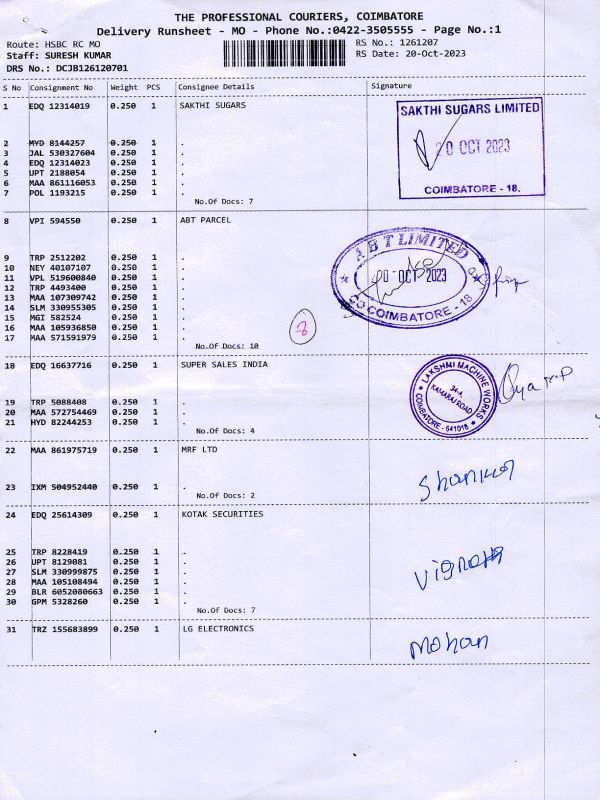 THE PROFESSIONAL COURIERS, COIMBATORE
Delivery Runsheet - MO - Phone No.:0422-3505555 - Page No.:1
Route: HSBC RC MO
RS No.: 1261207
Staff: SURESH KUMAR
RS Date: 20-Oct-2023
DRS No.: DCJB126120701
S No Consignment No Weight PCS Consignee Details Signature
1 EDQ 12314019 0.250 1 SAKTHI SUGARS
SAKTHI SUGARS LIMITED
20 OCT 2023
COIMBATORE - 18.
2 MYD 8144257 0.250 1 .
3 JAL 530327604 0.250 1 .
4 EDQ 12314023 0.250 1 .
5 UPT 2188054 0.250 1 .
6 MAA 861116053 0.250 1 .
7 POL 1193215 0.250 1 .
No.Of Docs: 7
8 VPI 594550 0.250 1 ABT PARCEL
ABT LIMITED
20 OCT 2023
COIMBATORE - 18
9 TRP 2512202 0.250 1 .
10 NEY 40107107 0.250 1 .
11 VPL 519600840 0.250 1 .
12 TRP 4493400 0.250 1 .
13 MAA 107309742 0.250 1 .
14 SLM 330955305 0.250 1 .
15 MGI 582524 0.250 1 .
16 MAA 105936850 0.250 1 .
17 MAA 571591979 0.250 1 .
No.Of Docs: 10
18 EDQ 16637716 0.250 1 SUPER SALES INDIA
LAKSHMI MACHINE WORKS
34-A
KAMARAJ ROAD
COIMBATORE - 641018
19 TRP 5088408 0.250 1 .
20 MAA 572754469 0.250 1 .
21 HYD 82244253 0.250 1 .
No.Of Docs: 4
22 MAA 861975719 0.250 1 MRF LTD
23 IXM 504952440 0.250 1 .
No.Of Docs: 2
24 EDQ 25614309 0.250 1 KOTAK SECURITIES
25 TRP 8228419 0.250 1 .
26 UPT 8129081 0.250 1 .
27 SLM 330999875 0.250 1 .
28 MAA 105108494 0.250 1 .
29 BLR 6052080663 0.250 1 .
30 GPM 5328260 0.250 1 .
No.Of Docs: 7
31 TRZ 155683899 0.250 1 LG ELECTRONICS
Mohan